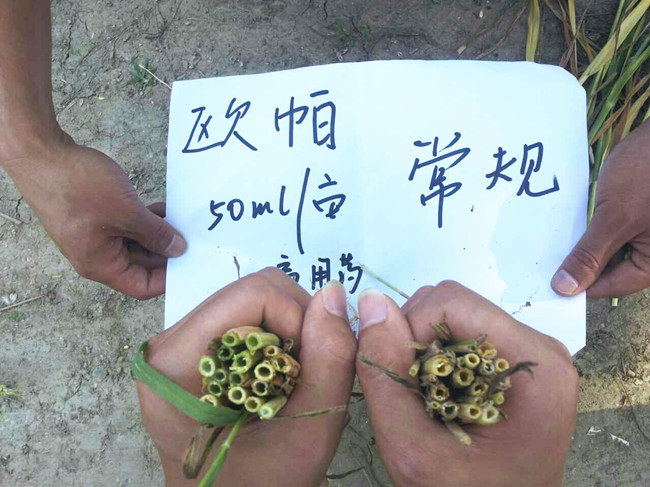 欧帕
50ml/亩
用药
常规